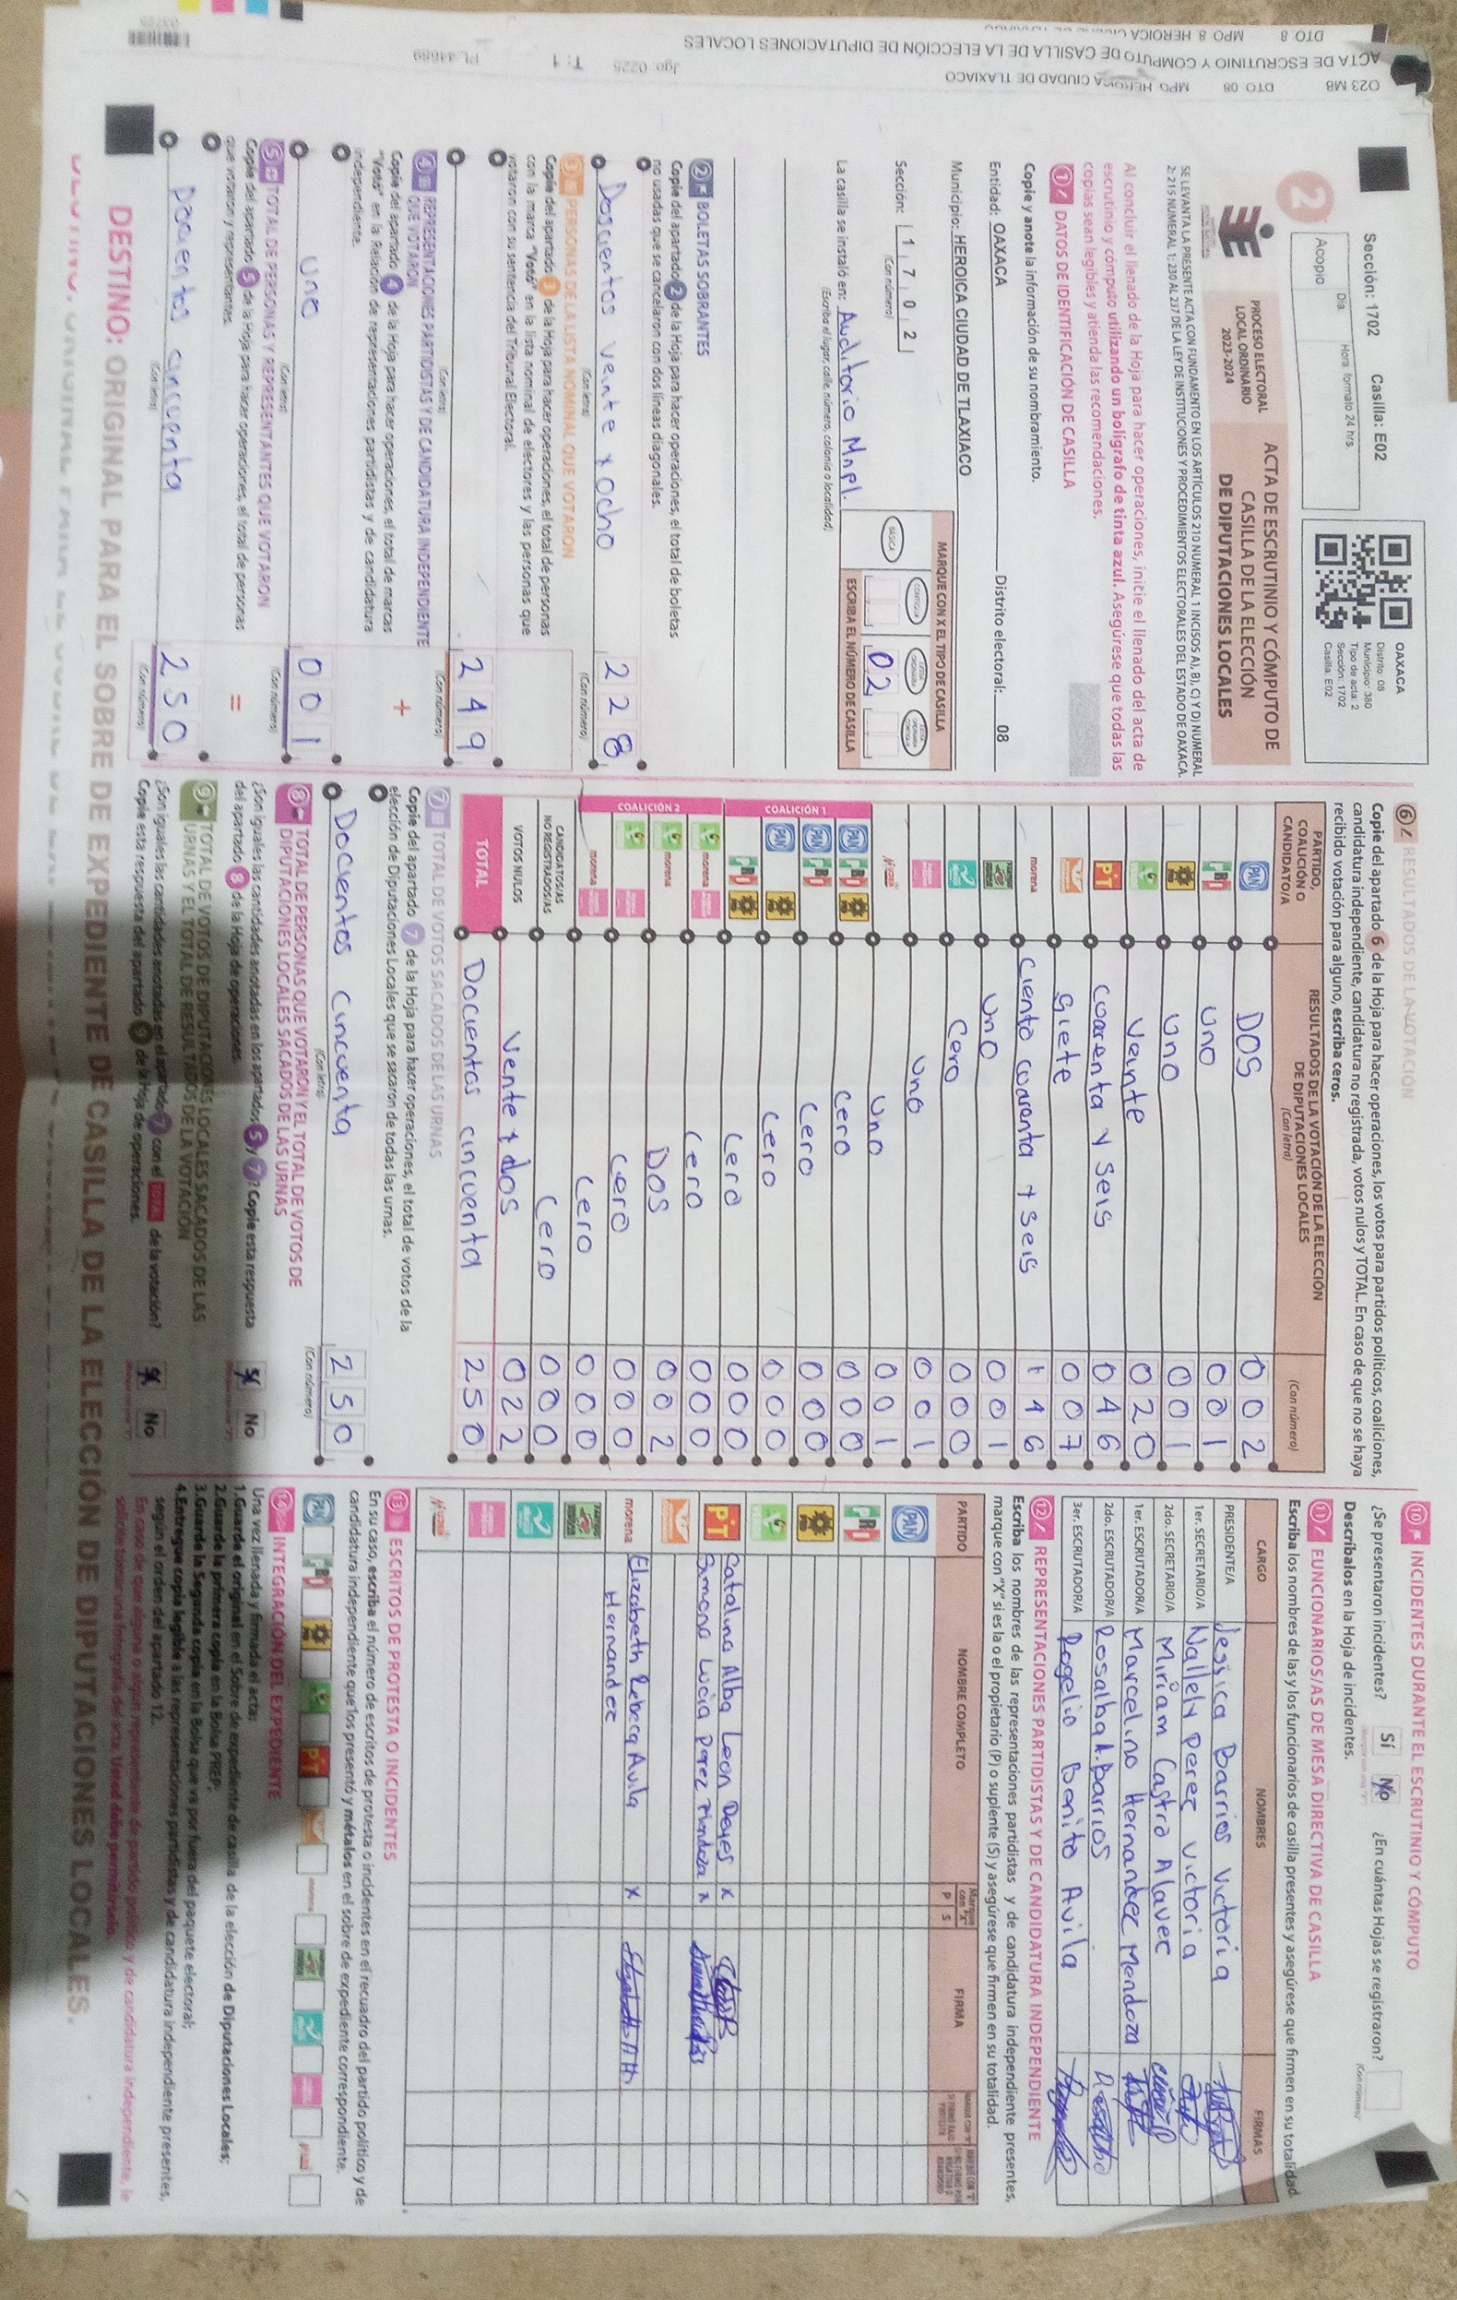 O23 MB DTO 08 MPO HEROICA CIUDAD DE TLAXIACO
ACTA DE ESCRUTINIO Y CÓMPUTO DE CASILLA DE LA ELECCIÓN DE DIPUTACIONES LOCALES
DTO 8 MPO 8 HEROICA
Jgo: 0225 T: 1 PL 44689
Sección: 1702 Casilla: E02
Día Hora formato 24 hrs.
Acopio
2
OAXACA
Distrito: 08
Municipio: 380
Tipo de acta: 2
Sección: 1702
Casilla: E02
PROCESO ELECTORAL
LOCAL ORDINARIO
2023-2024
ACTA DE ESCRUTINIO Y CÓMPUTO DE
CASILLA DE LA ELECCIÓN
DE DIPUTACIONES LOCALES
SE LEVANTA LA PRESENTE ACTA CON FUNDAMENTO EN LOS ARTÍCULOS 210 NUMERAL 1 INCISOS A), B), C) Y D) NUMERAL
2; 215 NUMERAL 1; 230 AL 237 DE LA LEY DE INSTITUCIONES Y PROCEDIMIENTOS ELECTORALES DEL ESTADO DE OAXACA.
Al concluir el llenado de la Hoja para hacer operaciones, inicie el llenado del acta de
escrutinio y cómputo utilizando un bolígrafo de tinta azul. Asegúrese que todas las
copias sean legibles y atienda las recomendaciones.
1 DATOS DE IDENTIFICACIÓN DE CASILLA
Copie y anote la información de su nombramiento.
Entidad: OAXACA Distrito electoral: 08
Municipio: HEROICA CIUDAD DE TLAXIACO
Sección: 1 7 0 2
(Con número)
MARQUE CON X EL TIPO DE CASILLA
BÁSICA CONTIGUA
02
ESCRIBA EL NÚMERO DE CASILLA
La casilla se instaló en: Auditorio Mnpl.
(Escriba el lugar, calle, número, colonia o localidad)
2 BOLETAS SOBRANTES
Copie del apartado 2 de la Hoja para hacer operaciones, el total de boletas
no usadas que se cancelaron con dos líneas diagonales.
Doscientos veinte y ocho 2 2 8
(Con letra) (Con número)
3 PERSONAS DE LA LISTA NOMINAL QUE VOTARON
Copie del apartado 3 de la Hoja para hacer operaciones, el total de personas
con la marca "Votó" en la lista nominal de electores y las personas que
votaron con su sentencia del Tribunal Electoral.
2 4 9
(Con letra) (Con número)
4 REPRESENTACIONES PARTIDISTAS Y DE CANDIDATURA INDEPENDIENTE
QUE VOTARON
Copie del apartado 4 de la Hoja para hacer operaciones, el total de marcas
"Votó" en la Relación de representaciones partidistas y de candidatura
independiente.
+
uno 0 0 1
(Con letra) (Con número)
5 TOTAL DE PERSONAS Y REPRESENTANTES QUE VOTARON
Copie del apartado 5 de la Hoja para hacer operaciones, el total de personas
que votaron y representantes.
=
Docientos cincuenta 2 5 0
(Con letra) (Con número)
6 RESULTADOS DE LA VOTACIÓN
Copie del apartado 6 de la Hoja para hacer operaciones, los votos para partidos políticos, coaliciones,
candidatura independiente, candidatura no registrada, votos nulos y TOTAL. En caso de que no se haya
recibido votación para alguno, escriba ceros.
PARTIDO,
COALICIÓN O
CANDIDATO/A
RESULTADOS DE LA VOTACIÓN DE LA ELECCIÓN
DE DIPUTACIONES LOCALES
(Con letra) (Con número)
PAN DOS 0 0 2
PRI uno 0 0 1
PRD uno 0 0 1
Veinte 0 2 0
PT cuarenta y seis 0 4 6
Siete 0 0 7
morena Ciento cuarenta y seis 1 4 6
uno 0 0 1
Cero 0 0 0
uno 0 0 1
uno 0 0 1
COALICIÓN 1
PAN PRI PRD Cero 0 0 0
PAN PRI Cero 0 0 0
PAN PRD Cero 0 0 0
PRI PRD Cero 0 0 0
COALICIÓN 2
morena Cero 0 0 0
morena DOS 0 0 2
Cero 0 0 0
morena Cero 0 0 0
CANDIDATOS/AS
NO REGISTRADOS/AS Cero 0 0 0
VOTOS NULOS Veinte y dos 0 2 2
TOTAL Docientos cincuenta 2 5 0
7 TOTAL DE VOTOS SACADOS DE LAS URNAS
Copie del apartado 7 de la Hoja para hacer operaciones, el total de votos de la
elección de Diputaciones Locales que se sacaron de todas las urnas.
Docientos cincuenta 2 5 0
(Con letra) (Con número)
8 TOTAL DE PERSONAS QUE VOTARON Y EL TOTAL DE VOTOS DE
DIPUTACIONES LOCALES SACADOS DE LAS URNAS
¿Son iguales las cantidades anotadas en los apartados 5 y 7? Copie esta respuesta
del apartado 8 de la Hoja de operaciones. Sí No
9 TOTAL DE VOTOS DE DIPUTACIONES LOCALES SACADOS DE LAS
URNAS Y EL TOTAL DE RESULTADOS DE LA VOTACIÓN
¿Son iguales las cantidades anotadas en el apartado 7 con el TOTAL de la votación?
Copie esta respuesta del apartado 9 de la Hoja de operaciones. Sí No
10 INCIDENTES DURANTE EL ESCRUTINIO Y CÓMPUTO
¿Se presentaron incidentes? Sí No ¿En cuántas Hojas se registraron?
(Con número)
Descríbalos en la Hoja de incidentes.
11 FUNCIONARIOS/AS DE MESA DIRECTIVA DE CASILLA
Escriba los nombres de las y los funcionarios de casilla presentes y asegúrese que firmen en su totalidad.
CARGO NOMBRES FIRMAS
PRESIDENTE/A Jessica Barrios Victoria
1er. SECRETARIO/A Nallely Perez victoria
2do. SECRETARIO/A Miriam Castro Alavez
1er. ESCRUTADOR/A Marcelino Hernandez Mendoza
2do. ESCRUTADOR/A Rosalba A. Barrios
3er. ESCRUTADOR/A Rogelio Benito Avila
12 REPRESENTACIONES PARTIDISTAS Y DE CANDIDATURA INDEPENDIENTE
Escriba los nombres de las representaciones partidistas y de candidatura independiente presentes,
marque con "X" si es la o el propietario (P) o suplente (S) y asegúrese que firmen en su totalidad.
PARTIDO NOMBRE COMPLETO Marque con "X" P S FIRMA
PAN
PRI
PRD
PT Catalina Alba Leon Reyes x
Simona Lucia Perez x
morena Elizabeth Rebeca Avila x
Hernandez
13 ESCRITOS DE PROTESTA O INCIDENTES
En su caso, escriba el número de escritos de protesta o incidentes en el recuadro del partido político y de
candidatura independiente que los presentó y métalos en el sobre de expediente correspondiente.
PAN PRI PRD PT morena
14 INTEGRACIÓN DEL EXPEDIENTE
Una vez llenada y firmada el acta:
1.Guarde el original en el Sobre de expediente de casilla de la elección de Diputaciones Locales;
2.Guarde la primera copia en la Bolsa PREP;
3.Guarde la Segunda copia en la Bolsa que va por fuera del paquete electoral;
4.Entregue copia legible a las representaciones partidistas y de candidatura independiente presentes,
según el orden del apartado 12.
En caso de que alguna o algún representante de partido político y de candidatura independiente, le
solicite tomar una fotografía del acta, Usted debe permitírselo.
DESTINO: ORIGINAL PARA EL SOBRE DE EXPEDIENTE DE CASILLA DE LA ELECCIÓN DE DIPUTACIONES LOCALES.